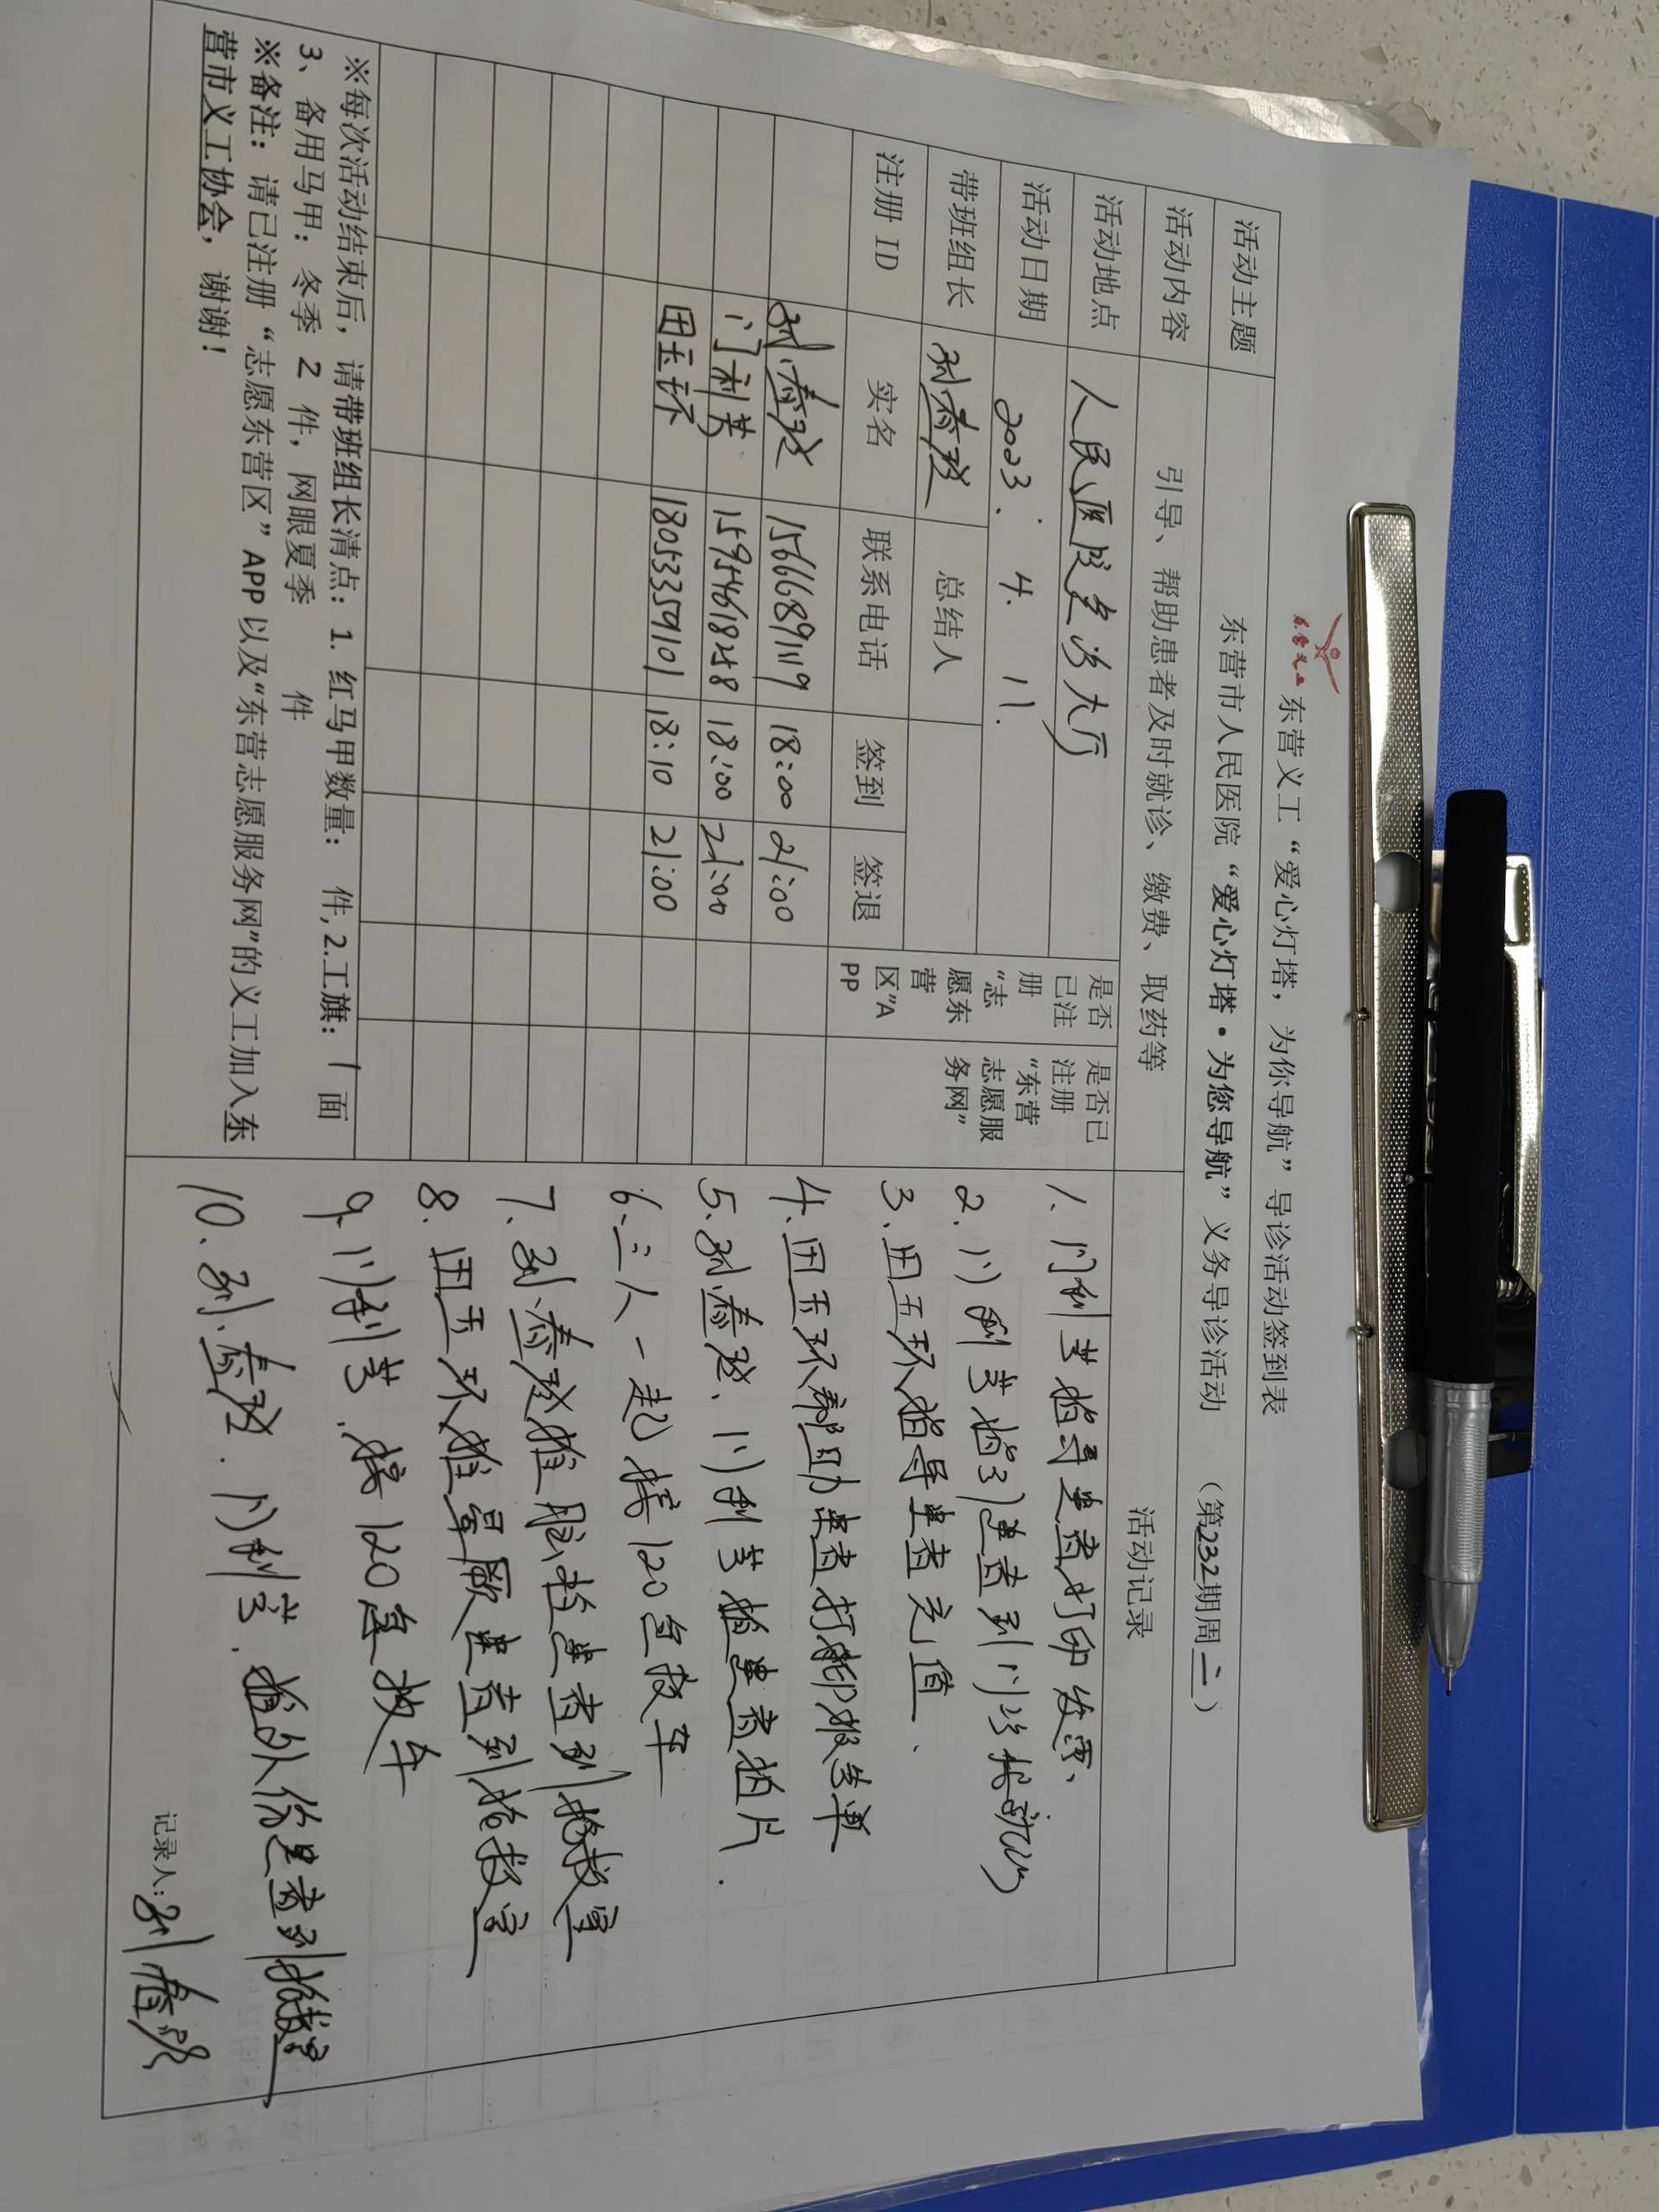 东营义工
东营义工“爱心灯塔，为你导航”导诊活动签到表
活动主题 东营市人民医院“爱心灯塔·为您导航”义务导诊活动 （第232期周二）
活动内容 引导、帮助患者及时就诊、缴费、取药等
活动地点 人民医院急诊大厅
活动日期 2023.4.11.
带班组长 总结人
是否已注册“志愿东营区”APP
是否已注册“东营志愿服务网”
注册 ID 实名 联系电话 签到 签退
15666891119 18:00 21:00
门利芳 15954618288 18:00 21:00
田玉环 18053359101 18:10 21:00
※每次活动结束后，请带班组长清点：1. 红马甲数量： 件,2.工旗：1面
3、备用马甲：冬季 2 件，网眼夏季 件
※备注：请已注册“志愿东营区”APP 以及“东营志愿服务网”的义工加入东
营市义工协会，谢谢！
活动记录
1.门利芳指导患者打印发票、
2.门利芳指引患者到门诊
3.田玉环指导患者充值.
4.田玉环帮助患者打印报告单
5. 门利芳推患者拍片.
6.三人一起接120急救车
7. 推脑梗患者到抢救室
8.田玉环推晕厥患者到抢救室
9.门利芳.接120急救车
10. 门利芳.推外伤患者到抢救室
记录人: